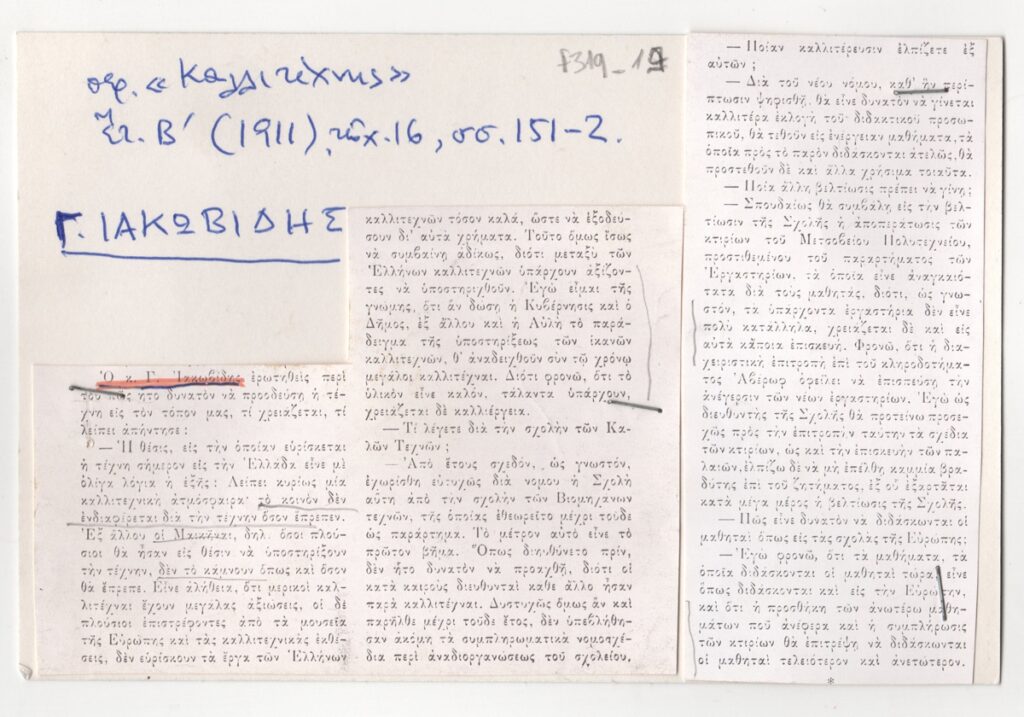 περ. «Καλλιτέχνης»
Ἔτ. Β' (1911), τεῦχ. 16, σσ. 151-2.
Γ. ΙΑΚΩΒΙΔΗΣ
Ὁ κ. Γ. Ἰακωβίδης ἐρωτηθεὶς περὶ
τοῦ πῶς ἦτο δυνατὸν νὰ προοδεύσῃ ἡ τέ-
χνη εἰς τὸν τόπον μας, τί χρειάζεται, τί
λείπει ἀπήντησε :
— Ἡ θέσις, εἰς τὴν ὁποίαν εὑρίσκεται
ἡ τέχνη σήμερον εἰς τὴν Ἑλλάδα εἶνε μὲ
ὀλίγα λόγια ἡ ἑξῆς : Λείπει κυρίως μία
καλλιτεχνικὴ ἀτμόσφαιρα· τὸ κοινὸν δὲν
ἐνδιαφέρεται διὰ τὴν τέχνην ὅσον ἔπρεπεν.
Ἐξ ἄλλου οἱ Μαικῆναι, δηλ. ὅσοι πλού-
σιοι θὰ ἦσαν εἰς θέσιν νὰ ὑποστηρίξουν
τὴν τέχνην, δὲν τὸ κάμνουν ὅπως καὶ ὅσον
θὰ ἔπρεπε. Εἶνε ἀλήθεια, ὅτι μερικοὶ καλ-
λιτέχναι ἔχουν μεγάλας ἀξιώσεις, οἱ δὲ
πλούσιοι ἐπιστρέφοντες ἀπὸ τὰ μουσεῖα
τῆς Εὐρώπης καὶ τὰς καλλιτεχνικὰς ἐκθέ-
σεις, δὲν εὑρίσκουν τὰ ἔργα τῶν Ἑλλήνων
καλλιτεχνῶν τόσον καλά, ὥστε νὰ ἐξοδεύ-
σουν δι' αὐτὰ χρήματα. Τοῦτο ὅμως ἴσως
νὰ συμβαίνῃ ἀδίκως, διότι μεταξὺ τῶν
Ἑλλήνων καλλιτεχνῶν ὑπάρχουν ἀξίζον-
τες νὰ ὑποστηριχθοῦν. Ἐγὼ εἶμαι τῆς
γνώμης, ὅτι ἂν δώσῃ ἡ Κυβέρνησις καὶ ὁ
Δῆμος, ἐξ ἄλλου καὶ ἡ Αὐλὴ τὸ παρά-
δειγμα τῆς ὑποστηρίξεως τῶν ἱκανῶν
καλλιτεχνῶν, θ' ἀναδειχθοῦν σὺν τῷ χρόνῳ
μεγάλοι καλλιτέχναι. Διότι φρονῶ, ὅτι τὸ
ὑλικὸν εἶνε καλόν, τάλαντα ὑπάρχουν,
χρειάζεται δὲ καλλιέργεια.
— Τί λέγετε διὰ τὴν σχολὴν τῶν Κα-
λῶν Τεχνῶν ;
— Ἀπὸ ἔτους σχεδόν, ὡς γνωστόν,
ἐχωρίσθη εὐτυχῶς διὰ νόμου ἡ Σχολὴ
αὕτη ἀπὸ τὴν σχολὴν τῶν Βιομηχάνων
τεχνῶν, τῆς ὁποίας ἐθεωρεῖτο μέχρι τοῦδε
ὡς παράρτημα. Τὸ μέτρον αὐτὸ εἶνε τὸ
πρῶτον βῆμα. Ὅπως διηυθύνετο πρίν,
δὲν ἦτο δυνατὸν νὰ προαχθῇ, διότι οἱ
κατὰ καιροὺς διευθυνταὶ κάθε ἄλλο ἦσαν
παρὰ καλλιτέχναι. Δυστυχῶς ὅμως ἂν καὶ
παρῆλθε μέχρι τοῦδε ἔτος, δὲν ὑπεβλήθη-
σαν ἀκόμη τὰ συμπληρωματικὰ νομοσχέ-
δια περὶ ἀναδιοργανώσεως τοῦ σχολείου.
7319-19
— Ποίαν καλλιτέρευσιν ἐλπίζετε ἐξ
αὐτῶν ;
— Διὰ τοῦ νέου νόμου, καθ' ἣν περί-
πτωσιν ψηφισθῇ, θὰ εἶνε δυνατὸν νὰ γίνεται
καλλιτέρα ἐκλογὴ τοῦ διδακτικοῦ προσω-
πικοῦ, θὰ τεθοῦν εἰς ἐνέργειαν μαθήματα, τὰ
ὁποῖα πρὸς τὸ παρὸν διδάσκονται ἀτελῶς, θὰ
προστεθοῦν δὲ καὶ ἄλλα χρήσιμα τοιαῦτα.
— Ποία ἄλλη βελτίωσις πρέπει νὰ γίνῃ ;
— Σπουδαίως θὰ συμβάλῃ εἰς τὴν βελ-
τίωσιν τῆς Σχολῆς ἡ ἀποπεράτωσις τῶν
κτιρίων τοῦ Μετσοβείου Πολυτεχνείου,
προστιθεμένου τοῦ παραρτήματος τῶν
Ἐργαστηρίων, τὰ ὁποῖα εἶνε ἀναγκαιό-
τατα διὰ τοὺς μαθητάς, διότι, ὡς γνω-
στόν, τὰ ὑπάρχοντα ἐργαστήρια δὲν εἶνε
πολὺ κατάλληλα, χρειάζεται δὲ καὶ εἰς
αὐτὰ κάποια ἐπισκευή. Φρονῶ, ὅτι ἡ δια-
χειριστικὴ ἐπιτροπὴ ἐπὶ τοῦ κληροδοτήμα-
τος Ἀβέρωφ ὀφείλει νὰ ἐπισπεύσῃ τὴν
ἀνέγερσιν τῶν νέων ἐργαστηρίων. Ἐγὼ ὡς
διευθυντὴς τῆς Σχολῆς θὰ προτείνω προσε-
χῶς πρὸς τὴν ἐπιτροπὴν ταύτην τὰ σχέδια
τῶν κτιρίων, ὡς καὶ τὴν ἐπισκευὴν τῶν πα-
λαιῶν, ἐλπίζω δὲ νὰ μὴ ἐπέλθῃ καμμία βρα-
δύτης ἐπὶ τοῦ ζητήματος, ἐξ οὗ ἐξαρτᾶται
κατὰ μέγα μέρος ἡ βελτίωσις τῆς Σχολῆς.
— Πῶς εἶνε δυνατὸν νὰ διδάσκωνται οἱ
μαθηταὶ ὅπως εἰς τὰς σχολὰς τῆς Εὐρώπης ;
— Ἐγὼ φρονῶ, ὅτι τὰ μαθήματα, τὰ
ὁποῖα διδάσκονται οἱ μαθηταὶ τώρα, εἶνε
ὅπως διδάσκονται καὶ εἰς τὴν Εὐρώπην,
καὶ ὅτι ἡ προσθήκη τῶν ἀνωτέρω μαθη-
μάτων ποὺ ἀνέφερα καὶ ἡ συμπλήρωσις
τῶν κτιρίων θὰ ἐπιτρέψῃ νὰ διδάσκωνται
οἱ μαθηταὶ τελειότερον καὶ ἀνετώτερον.
*